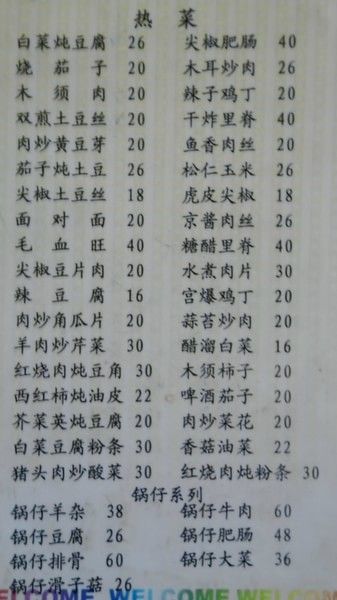 热 菜
白菜炖豆腐 26 尖椒肥肠 40
烧茄子 20 木耳炒肉 26
木须肉 20 辣子鸡丁 20
双煎土豆丝 20 干炸里脊 40
肉炒黄豆芽 20 鱼香肉丝 20
茄子炖土豆 26 松仁玉米 26
尖椒土豆丝 18 虎皮尖椒 18
面对面 20 京酱肉丝 26
毛血旺 40 糖醋里脊 40
尖椒豆片肉 20 水煮肉片 30
辣豆腐 16 宫爆鸡丁 20
肉炒角瓜片 20 蒜苔炒肉 20
羊肉炒芹菜 30 醋溜白菜 16
红烧肉炖豆角 30 木须柿子 20
西红柿炖油皮 22 啤酒茄子 20
芥菜英炖豆腐 20 肉炒菜花 20
白菜豆腐粉条 30 香菇油菜 22
猪头肉炒酸菜 30 红烧肉炖粉条 30
锅仔系列
锅仔羊杂 38 锅仔牛肉 60
锅仔豆腐 26 锅仔肥肠 48
锅仔排骨 60 锅仔大菜 36
锅仔滑子菇 26
WELCOME WELCOME